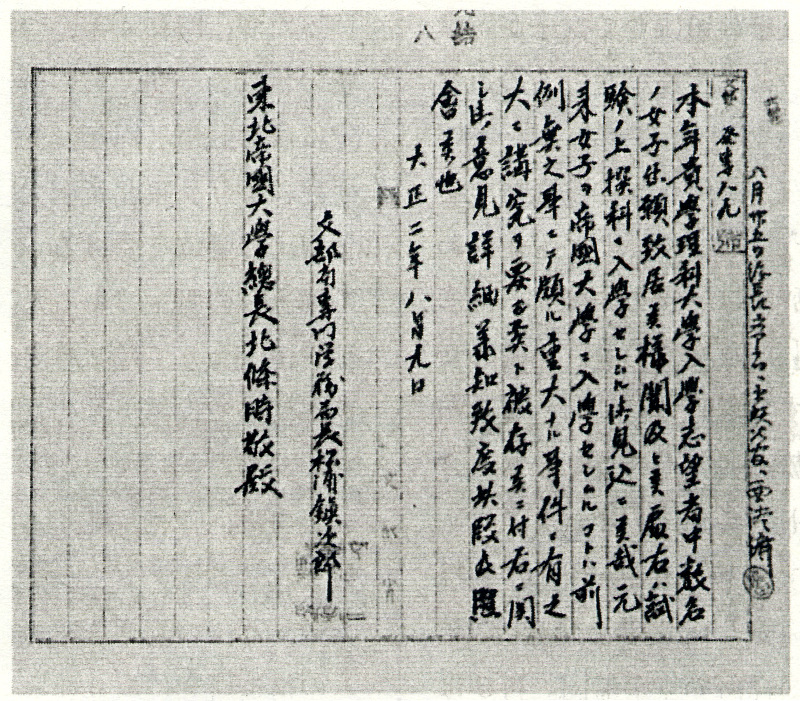 本年貴學理科大學入學志望者中數名
ノ女子出願致居候樣聞及ヒ候處右ハ試
驗ノ上撰科ニ入學セシムル御見込ニ候哉元
來女子ヲ帝國大學ニ入學セシムルコトハ前
例無之事ニテ頗ル重大ナル事件ニ有之
大ニ講究ヲ要シ候ト被存候ニ付右ニ關
シ御意見詳細承知致度此段及照
會候也
大正二年八月九日
文部省專門學務局長松浦鎭次郎
東北帝國大學總長北條時敬殿